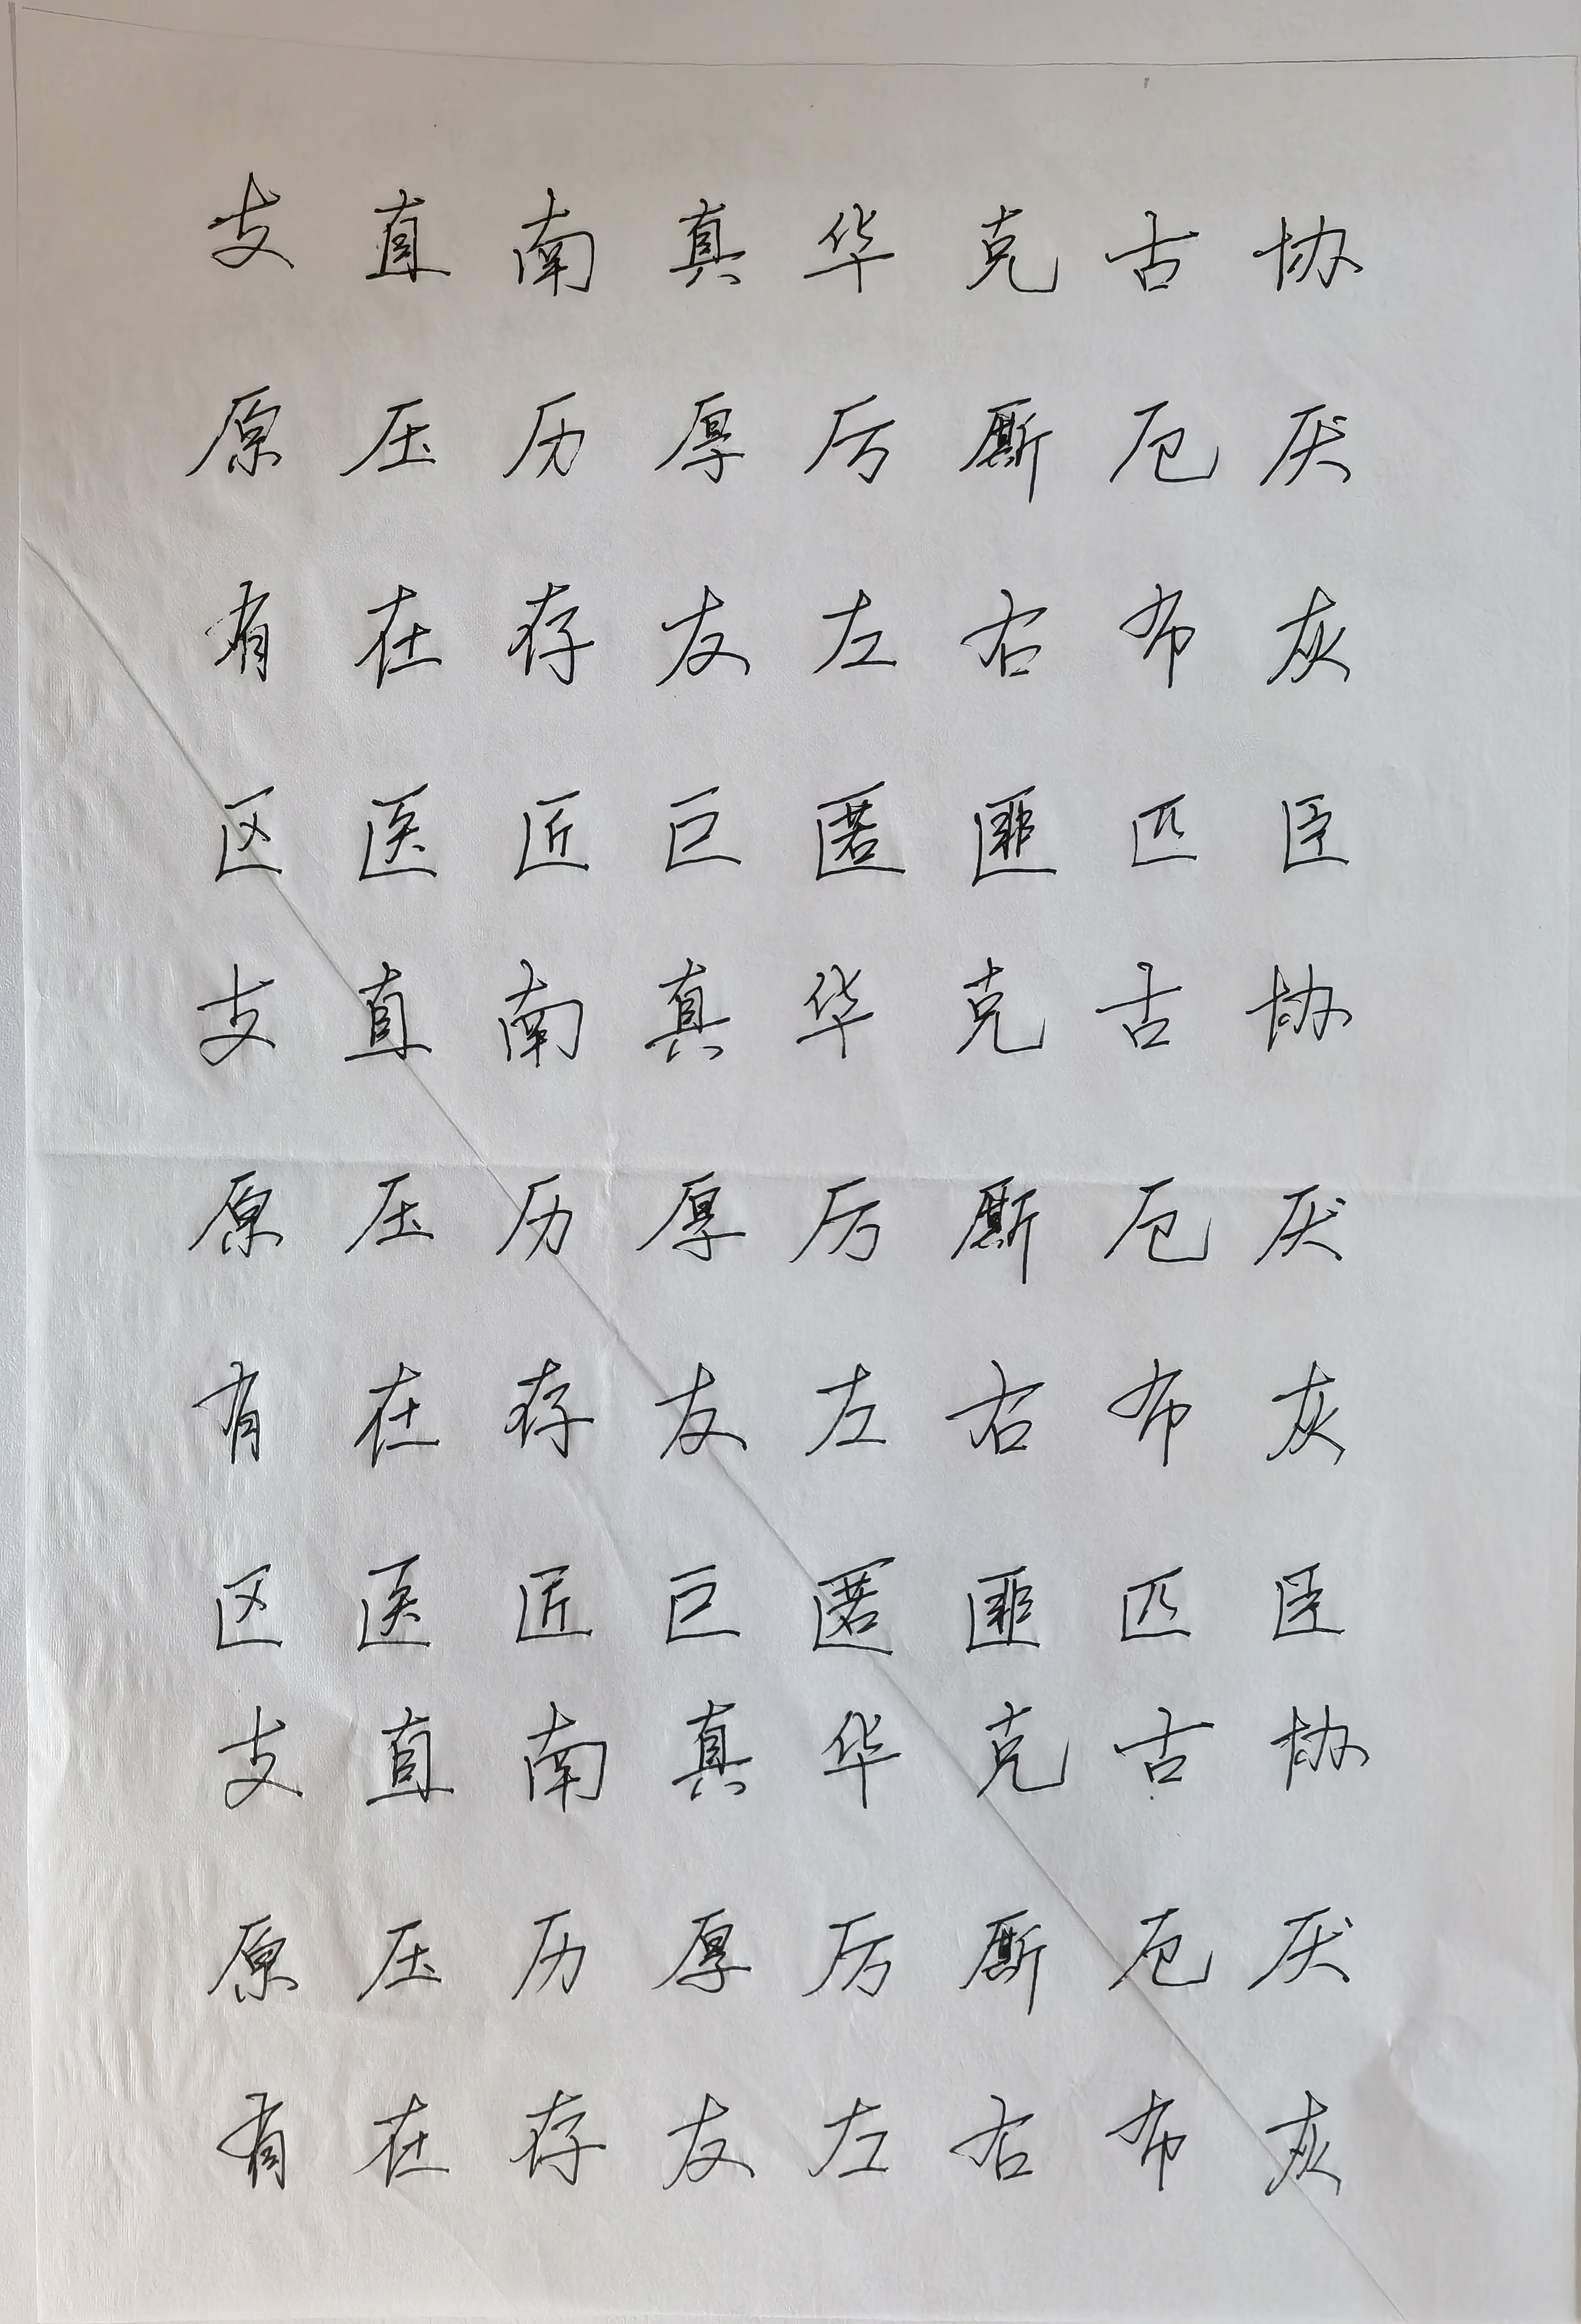 支直南真华克古协
原压历厚厉厮厄厌
有在存友左右布灰
区医匠巨匿匪匹臣
支直南真华克古协
原压历厚厉厮厄厌
有在存友左右布灰
区医匠巨匿匪匹臣
支直南真华克古协
原压历厚厉厮厄厌
有在存友左右布灰